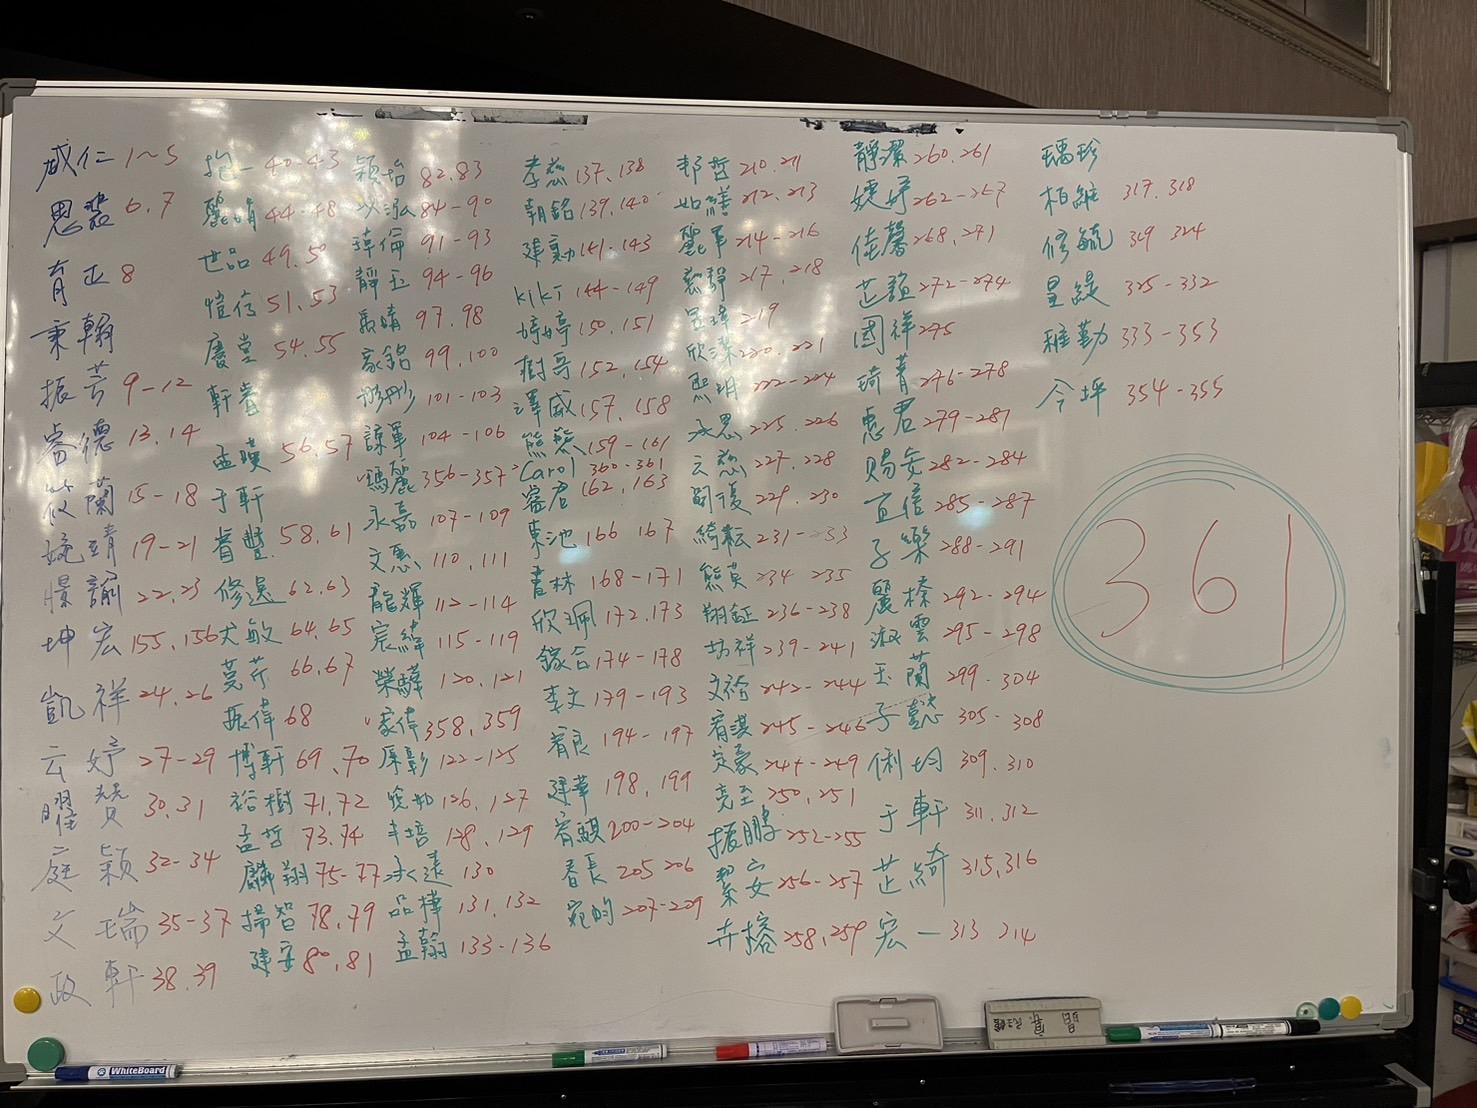 成仁 1~5
思裴 6.7
育正 8
秉翰
振芳 9-12
睿德 13.14
筱蘭 15-18
婉靖 19-21
憬諭 22.23
坤宏 155.156
凱祥 24.26
云婷 27-29
曜贊 30.31
庭穎 32-34
文瑞 35-37
政軒 38.39
抱一 40-43
麗晴 44-48
世品 49.50
愷信 51.53
慶堂 54.55
軒睿
孟暵 56.57
于軒
睿豐 58.61
修遠 62.63
犬敏 64.65
莞芹 66.67
振偉 68
博軒 69.70
裕樹 71.72
孟哲 73.74
麟翔 75-77
揚智 78.79
建安 80.81
穎怡 82.83
以泓 84-90
瑋倫 91-93
靜玉 94-96
97.98
家銘 99.100
彤彤 101-103
諫軍 104-106
瑪麗 356-357
永嘉 107-109
文惠 110.111
龍輝 112-114
宸緯 115-119
榮驊 120.121
家偉 358.359
厚彰 122-125
筱如 126.127
丰培 128.129
承遠 130
品樺 131.132
孟翰 133-136
孝慈 137.138
朝銘 139.140
建勳 141-143
kiki 144-149
婷婷 150.151
樹哥 152.154
澤威 157.158
熊熊 159-161
Carol 360-361
審君 162.163
東池 166 167
書林 168-171
欣珮 172.173
鎵合 174-178
李文 179-193
宥良 194-197
建華 198.199
宥騏 200-204
春長 205 206
宛昀 207-209
邦哲 210.211
如繕 212.213
麗軍 214-216
慈靜 217.218
昱瑋 219
欣潔 220.221
熙明 222-224
永恩 225.226
云慈 227.228
嗣後 229.230
綺耘 231-233
熊英 234-235
翔鉦 236-238
坊祥 239-241
文裕 242-244
宥淇 245-246
定豪 247-249
亮至 250.251
振鵬 252-255
絜安 256-257
卉榕 258.259
靜潔 260.261
婕妤 262-267
佳馨 268.271
芷誼 272-274
國祥 275
琦菁 276-278
惠君 279-281
賜安 282-284
宜信 285-287
子樂 288-291
麗榛 292-294
淑雲 295-298
玉蘭 299-304
子懿 305-308
俐均 309.310
于軒 311.312
芷綺 315.316
宏一 313 314
瑀珍
柏維 317.318
修毓 319 324
星緹 325-332
雅勤 333-353
今坪 354-355
361
WhiteBoard